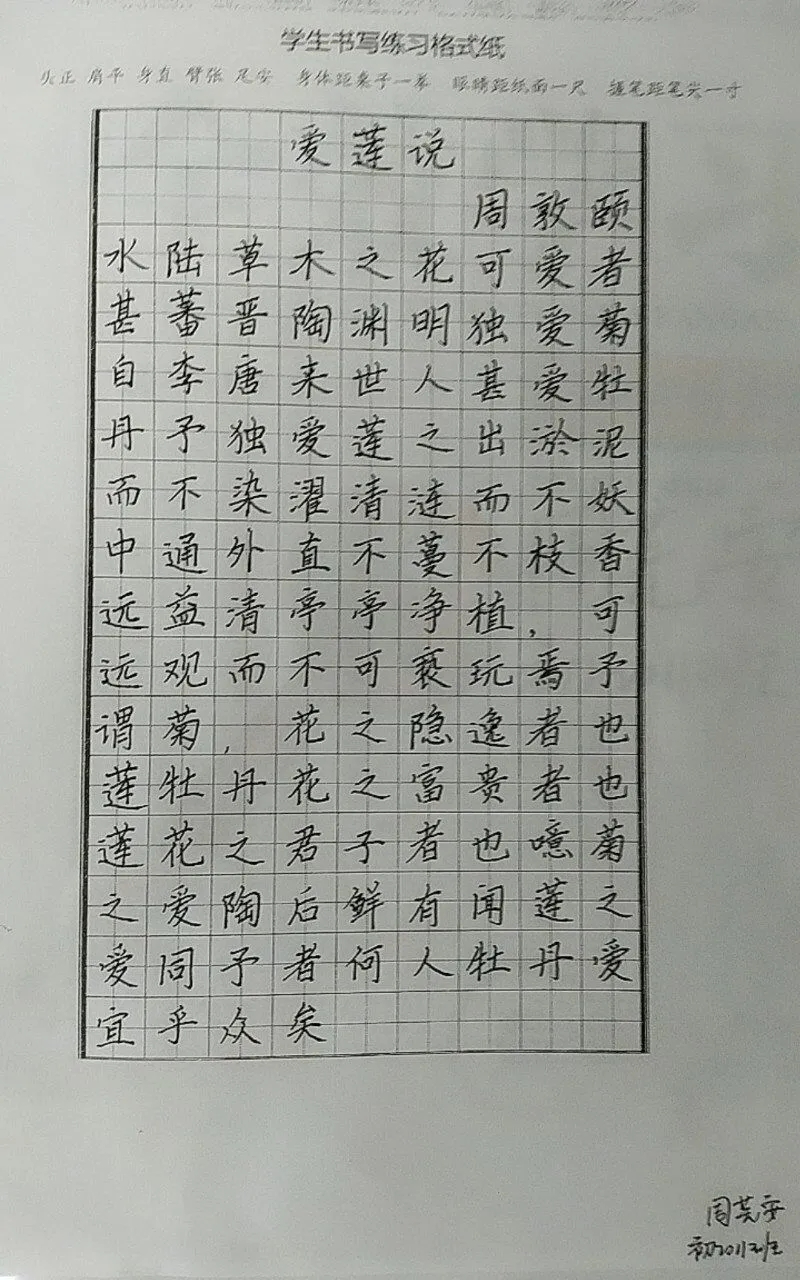 学生书写练习格式纸
头正 肩平 身直 臂张 足安 身体距桌子一拳 眼睛距纸面一尺 握笔距笔尖一寸
爱莲说
周敦颐
水陆草木之花可爱者
甚蕃晋陶渊明独爱菊
自李唐来世人甚爱牡
丹予独爱莲之出淤泥
而不染濯清涟而不妖
中通外直不蔓不枝香
远益清亭亭净植，可
远观而不可亵玩焉予
谓菊，花之隐逸者也
莲牡丹花之富贵者也
莲花之君子者也噫菊
之爱陶后鲜有闻莲之
爱同予者何人牡丹爱
宜乎众矣
周芸安
初2011班